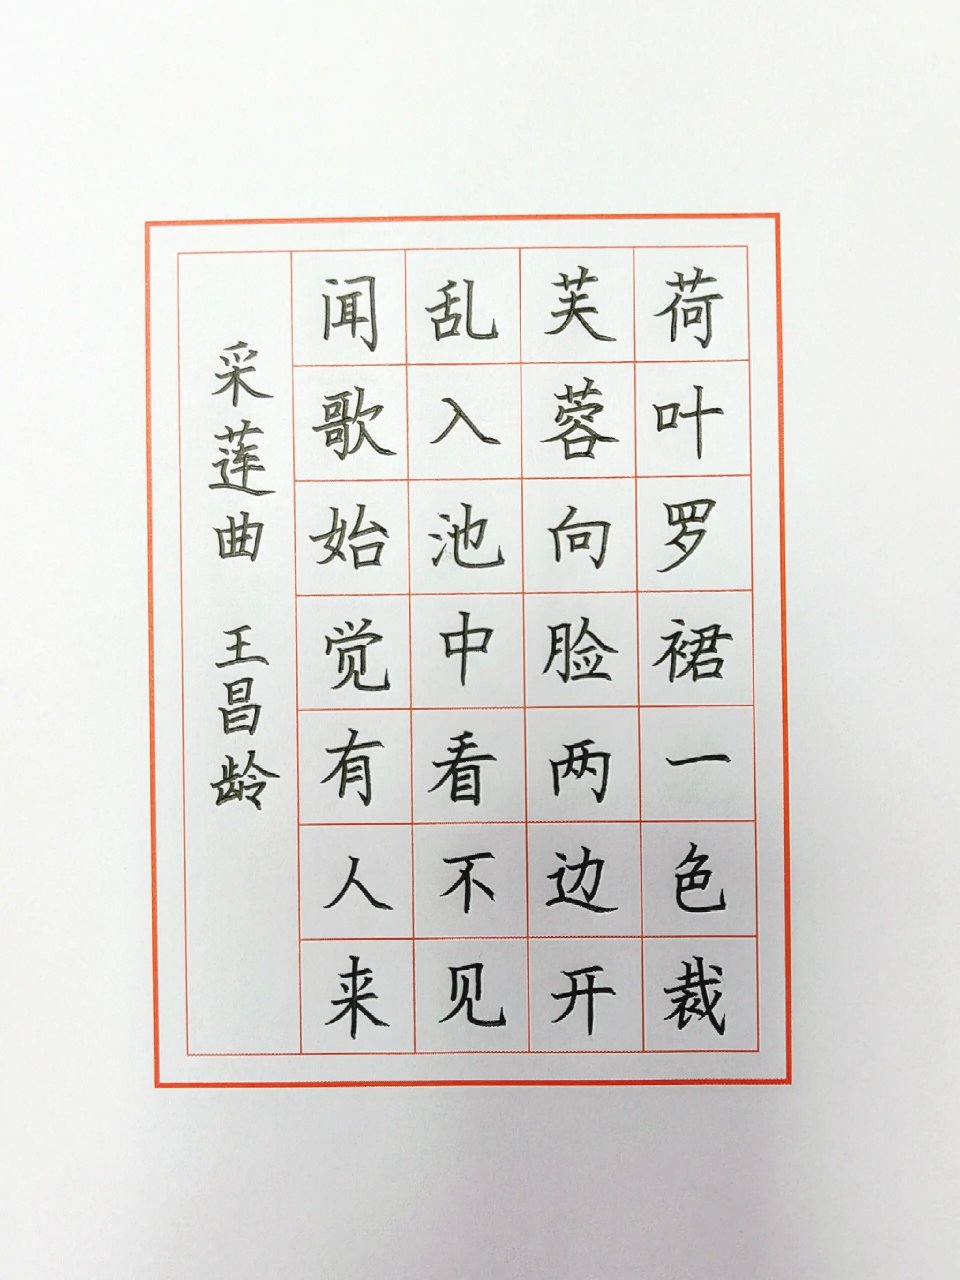 荷叶罗裙一色裁
芙蓉向脸两边开
乱入池中看不见
闻歌始觉有人来
采莲曲 王昌龄